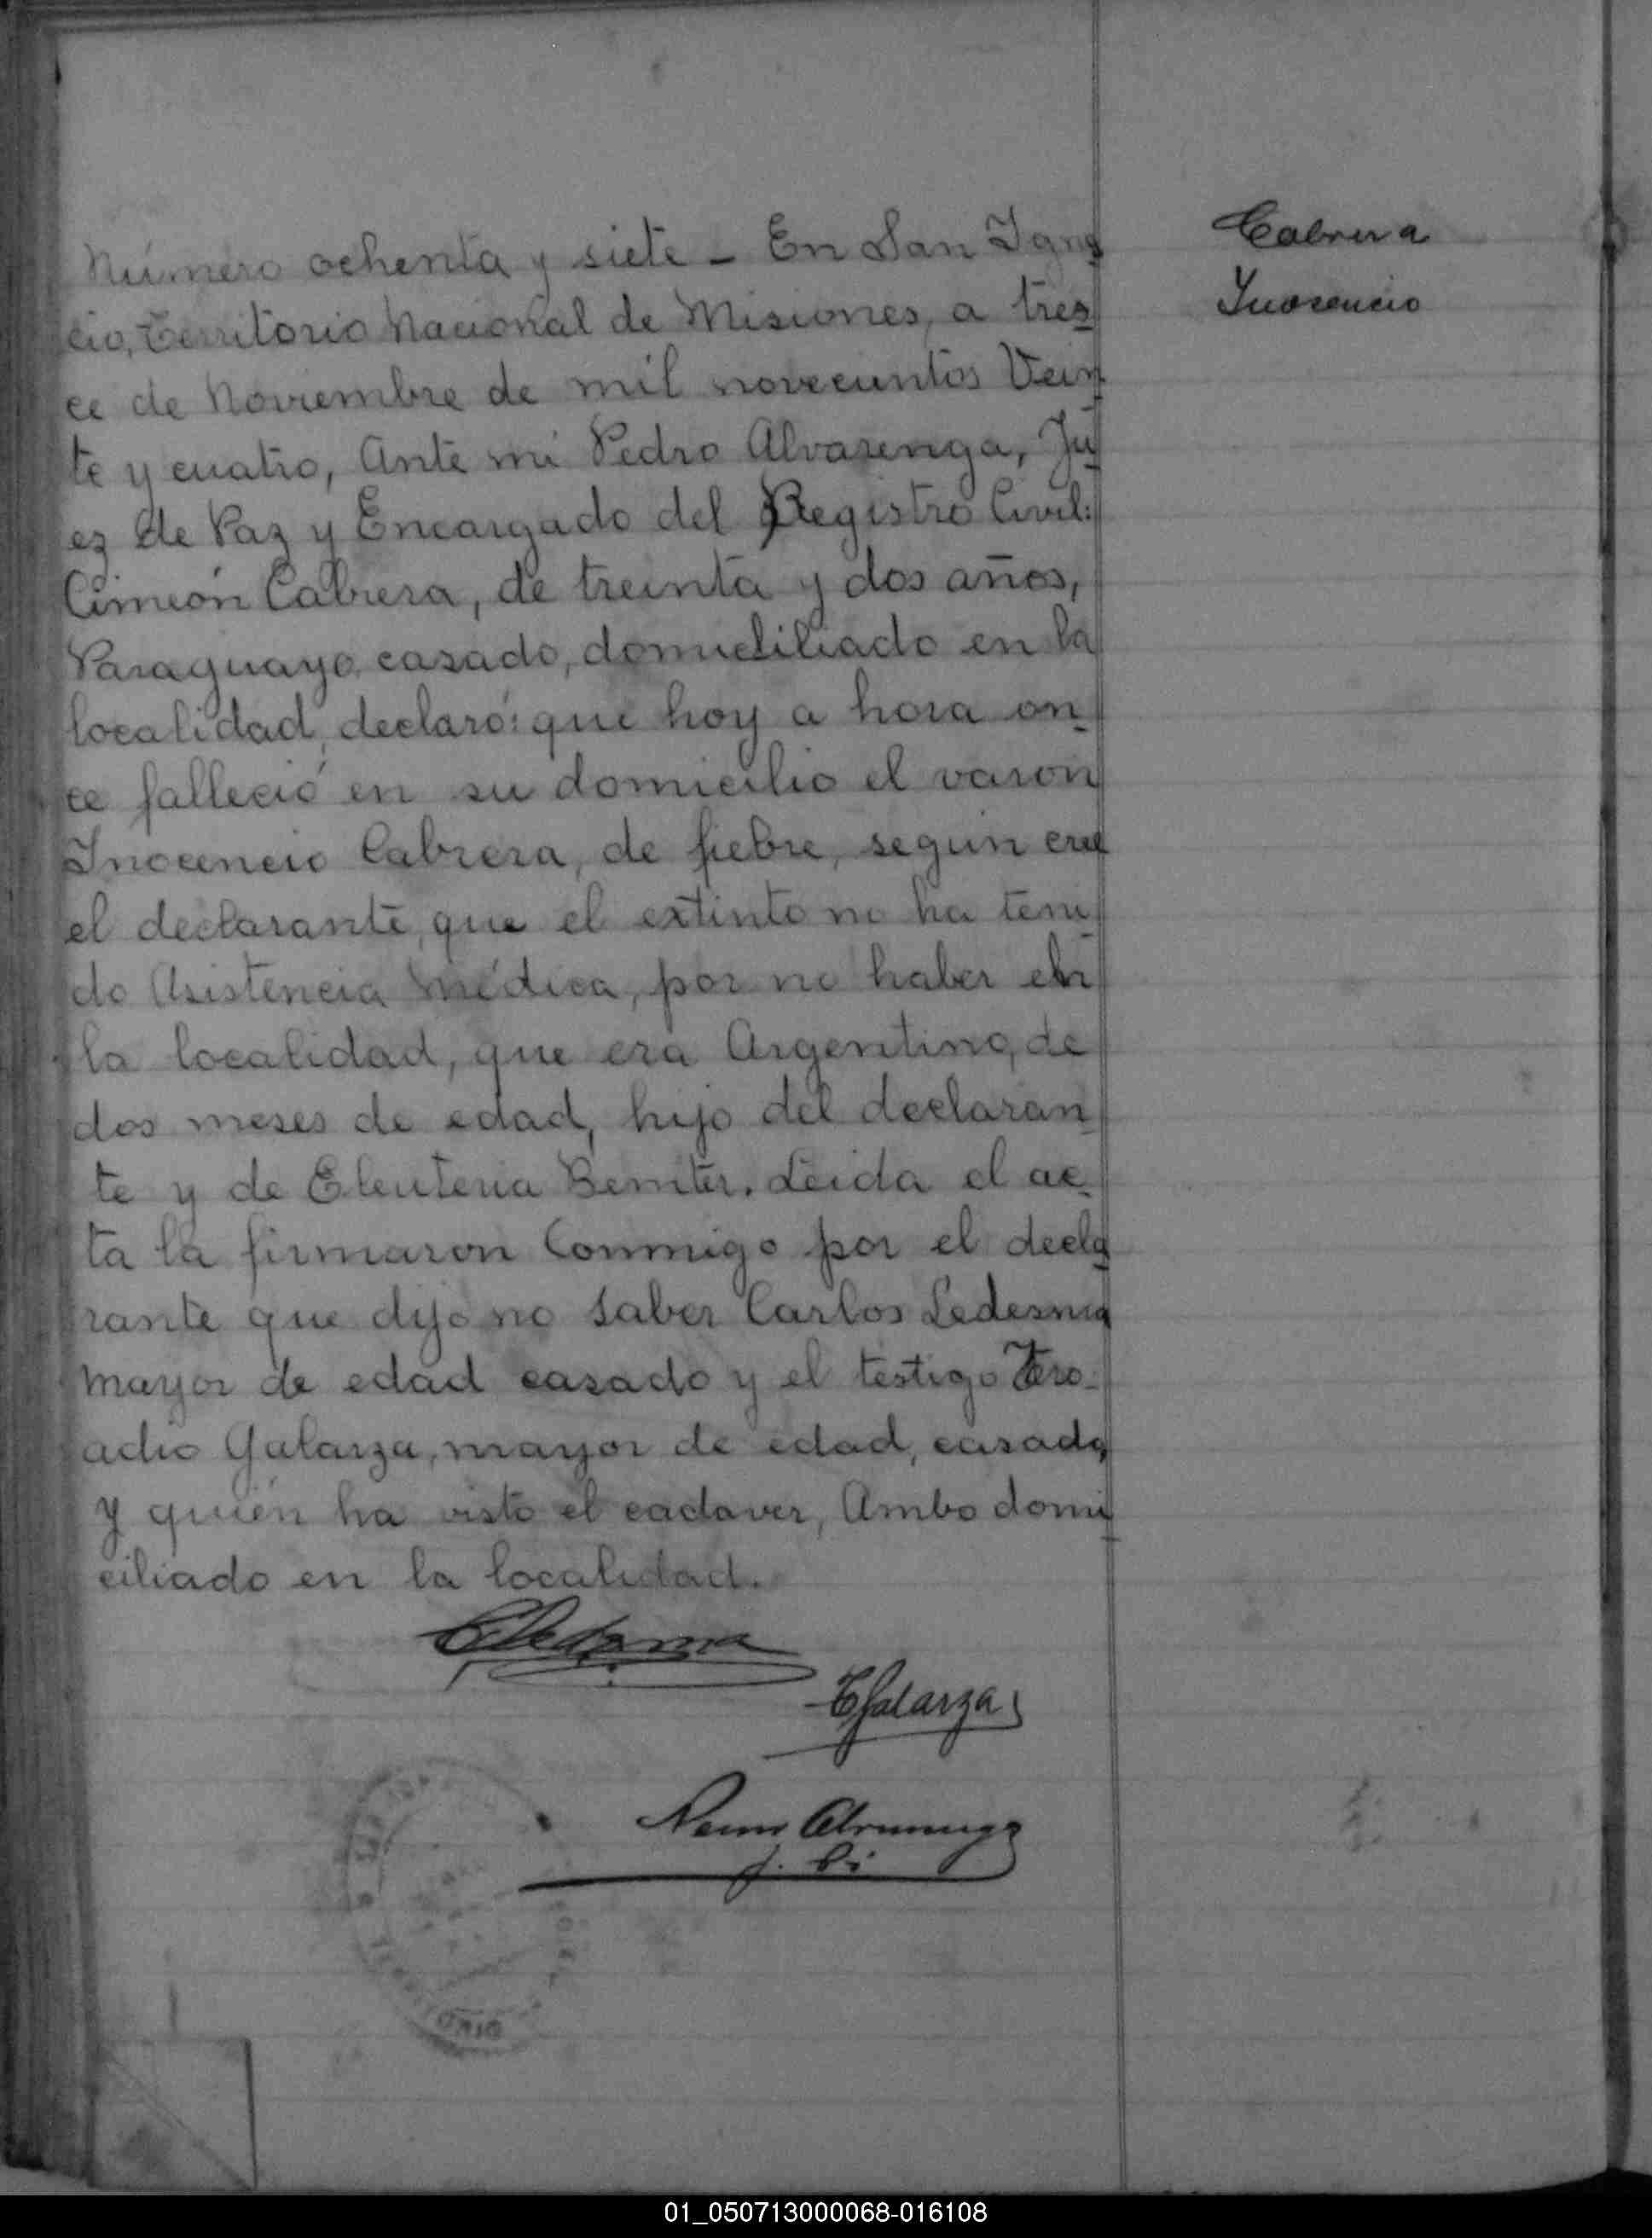 Número ochenta y siete - En San Igna
cio, Territorio Nacional de Misiones, a tres
ce de Noviembre de mil novecientos Vein
te y cuatro, Ante mi Pedro Alvarenga, Ju
ez de Paz y Encargado del Registro Civil:
Cimeón Cabrera, de treinta y dos años,
Paraguayo, casado, domiciliado en la
localidad, declaró: que hoy a hora on
ce falleció en su domicilio el varon
Inocencio Cabrera, de fiebre, según cree
el declarante, que el extinto no ha teni
do Asistencia Médica, por no haber en
la localidad, que era Argentino, de
dos meses de edad, hijo del declaran
te y de Eleuteria Benitez. Leida el ac
ta la firmaron Conmigo por el decla
rante que dijo no saber Carlos Ledesma
mayor de edad casado y el testigo
Galarza, mayor de edad, casado,
y quién ha visto el cadaver, Ambo domi
ciliado en la localidad.
CLedesma
TGalarza
Pedro Alvarenga
Cabrera
Inosencio
TERRITORIO
01_050713000068-016108